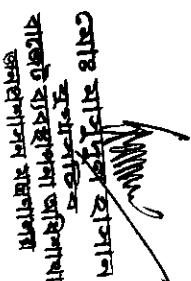 মোঃ হাসান
যুগ্মসচিব
বাজেট ব্যবস্থাপনা অধিশাখা
জনপ্রশাসন মন্ত্রণালয়